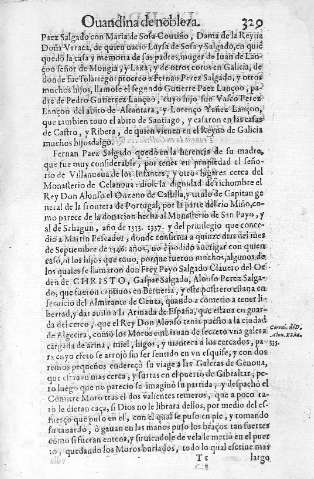 Ouandina de nobleza. 329
Paez Salgado con Maria de Sosa Coutiño, Dama de la Reyna
Doña Vrraca, de quien nacio Luysa de Sosa y Salgado, en quié
quedò la casa y memoria de sus padres, muger de Iuan de Lan-
çou señor de Mongia, y Laza, y de otros cotos en Galicia, de
don de fue solariego: procreo a Fernan Perez Salgado, y otros
muchos hijos, llamose el segundo Gutierre Paez Lançou, pa-
dre de Pedro Gutierrez Lançou, cuyo hijo fue Vasco Perez
Lançou del abito de Alcantara, y Lorenço Yañez Lançou,
que tambien tuuo el abito de Santiago, y casaron en las casas
de Castro, y Ribera, de quien vienen en el Reyno de Galicia
muchos hijosdalgo.
Fernan Paez Salgado quedò en la herencia de su madre,
que fue muy considerable, por tener en propiedad el seño-
rio de Villanueua de los Infantes, y otros lugares cerca del
Monasterio de Celanoua: diole la dignidad de richombre el
Rey Don Alonso el Onzeno de Castilla, y titulo de Capitan ge
neral de la frontera de Portugal, por la parte del rio Miño, co-
mo parece de la donacion hecha al Monasterio de San Payo, y
al de Sahagun, año de 1333. 1337. y del priuilegio que conce-
dio a Martin Pescador, donde confirma a quinze dias del mes
de Setiembre de 1346. años, no è podido aueriguar con quien
casò, ni los hijos que tuuo, porque fueron muchos, algunos de
los quales se llamaron don Frey Payo Salgado Clauero del Or-
den de CHRISTO, Gaspar Salgado, Alonso Perez Salga-
do, que fueron cautiuos en Berueria, y este postrero estaua en
seruicio del Almirante de Ceuta, quando acometio a tener li-
bertad, y dar auiso a la Armada de España, que estaua en guar-
da del cerco, que el Rey Don Alonso tenia puesto a la ciudad
de Algezira, como los Moros embiauan de secreto vna galera
cargada de arina, miel, higos, y manteca a los cercados, pa-
ra cuyo efeto se arrojò sin ser sentido en vn esquife, y con dos
remos pequeños endereçò su viage a las Galeras de Genoua,
que estauan mas cerca, y surtas en el puerto de Gibaltar, pe-
ro luego que no parecio se imaginò su partida, y despachò el
Comitre Moro tras el dos valientes remeros, que a poco ra-
to le dieran caça, si Dios no le librara dellos, por medio del es-
fuerço que puso en el, con el qual se puso en pie, y tomando
su tauardo, ò gauan en las manos puso los braços tan fuertes
como si fueran entena, y siruiendole de vela le metio en el puer
to, quedando los Moros burlados, todo lo qual escriue mas
Tt largo